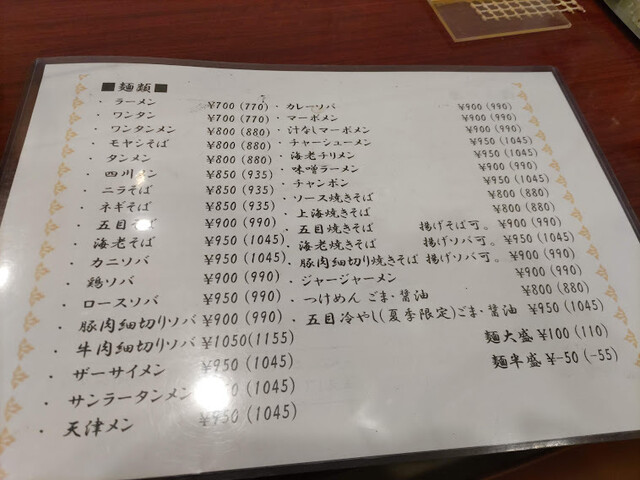 ■麺類■
・ラーメン ¥700(770)
・ワンタン ¥700(770)
・ワンタンメン ¥800(880)
・モヤシそば ¥800(880)
・タンメン ¥800(880)
・四川メン ¥850(935)
・ニラそば ¥850(935)
・ネギそば ¥850(935)
・五目そば ¥900(990)
・海老そば ¥950(1045)
・カニソバ ¥950(1045)
・鶏ソバ ¥900(990)
・ロースソバ ¥950(990)
・豚肉細切りソバ ¥900(990)
・牛肉細切りソバ ¥1050(1155)
・ザーサイメン ¥950(1045)
・サンラータンメン ¥950(1045)
・天津メン ¥950(1045)
・カレーソバ ¥900(990)
・マーボメン ¥900(990)
・汁なしマーボメン ¥900(990)
・チャーシューメン ¥950(1045)
・海老チリメン ¥950(1045)
・味噌ラーメン ¥900(990)
・チャンポン ¥950(1045)
・ソース焼きそば ¥800(880)
・上海焼きそば ¥800(880)
・五目焼きそば 揚げそば可。 ¥900(990)
・海老焼きそば 揚げソバ可。 ¥950(1045)
・豚肉細切り焼きそば 揚げソバ可。 ¥900(990)
・ジャージャーメン ¥900(990)
・つけめん ごま・醤油 ¥800(880)
・五目冷やし(夏季限定)ごま・醤油 ¥950(1045)
麺大盛 ¥100(110)
麺半盛 ¥-50(-55)